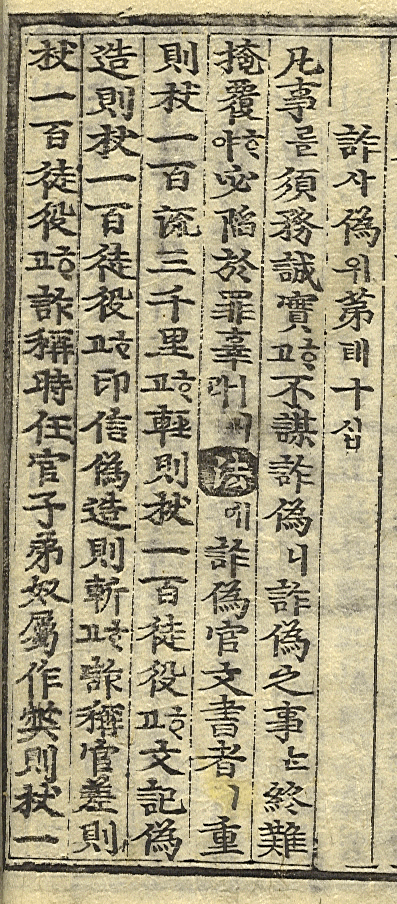 詐사偽위第뎨十십
凡事를須務誠實ᄒᆞ고不謀詐偽니詐偽之事ᄂᆞᆫ終難
掩覆ᄒᆞ야必陷於罪辜法에詐偽官文書者ㅣ重
則杖一百流三千里ᄒᆞ고輕則杖一百徒役ᄒᆞ고文記偽
造則杖一百徒役ᄒᆞ고印信偽造則斬ᄒᆞ고詐稱官差則
杖一百徒役ᄒᆞ고詐稱時任官子弟奴屬作弊則杖一